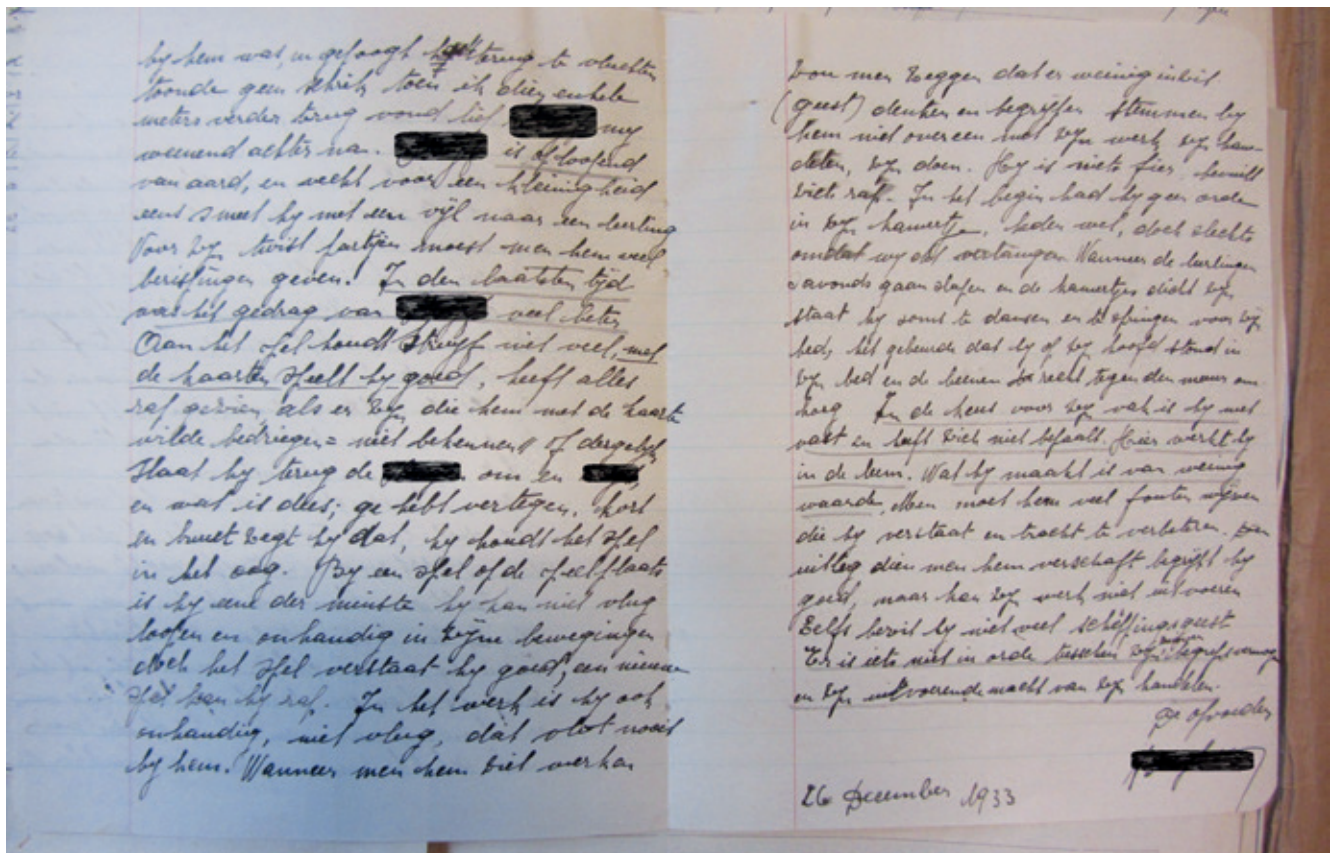 by hem was, in gefoogt terug te vluchten
toonde geen schrik toen ik dien enkele
meters verder terug vond lief my
weenend achter na. is oploopend
van aard, en vecht voor een kleinigheid
eens smeet hy met een vyl naar een leerling
Voor zyn twist partijen moest men hem veel
berispingen geven. In den laatsten tyd
was het gedrag van veel beter
Aan het spel houdt niet veel, met
de kaarten speelt hy goed, heeft alles
rap gezien als er zyn die hem met de kaarte
wilde bedriegen = niet bekennen of dergelyk
Staat hy terug de om en
en wat is dees; ge hebt vertegen. kort
en bunet zegt hy dat, hy houdt het spel
in het oog. By een spel op de speelplaats
is hy eene der minste hy kan niet vlug
loopen en onhandig in zyne bewegingen
doch het spel verstaat hy goed, een nieuw
spel kan hy rap. In het werk is hy ook
onhandig, niet vlug, dat vlot nooit
by hem. Wanneer men hem ziet werken
zou men zeggen dat er weinig inzit
(geest) denken en begrijpen stemmen by
hem niet overeen met zyn werk zyn han-
delen, zyn doen. Hy is niets fier, bevuilt
zich rap. In het begin had hy geen orde
in zyn kamertje, heden wel, doch slechts
omdat wy dat verlangen Wanneer de leerlingen
s avonds gaan slapen en de kamertjes dicht zyn
staat hy soms te dansen en te springen voor zyn
bed, het gebeurde dat hy op zyn hoofd stond in
zyn bed en de beenen recht tegen den muur om
hoog In de keus voor zyn vak is hy niet
vast en heeft zich niet bepaalt. Hier werkt hy
in de leem. Wat hy maakt is van weinig
waarde. Men moet hem veel fouten wyzen
die hy verstaat en tracht te verbeteren. Den
uitleg dien men hem verschaft begrypt hy
goed, maar kan zyn werk niet uitvoeren
Zelfs bezit hy niet veel scheppingsgeest
Er is iets niet in orde tusschen zyn begrypsvermogen
en zyn uitvoerende macht van zyn handelen.
De opvoeder
26 December 1933